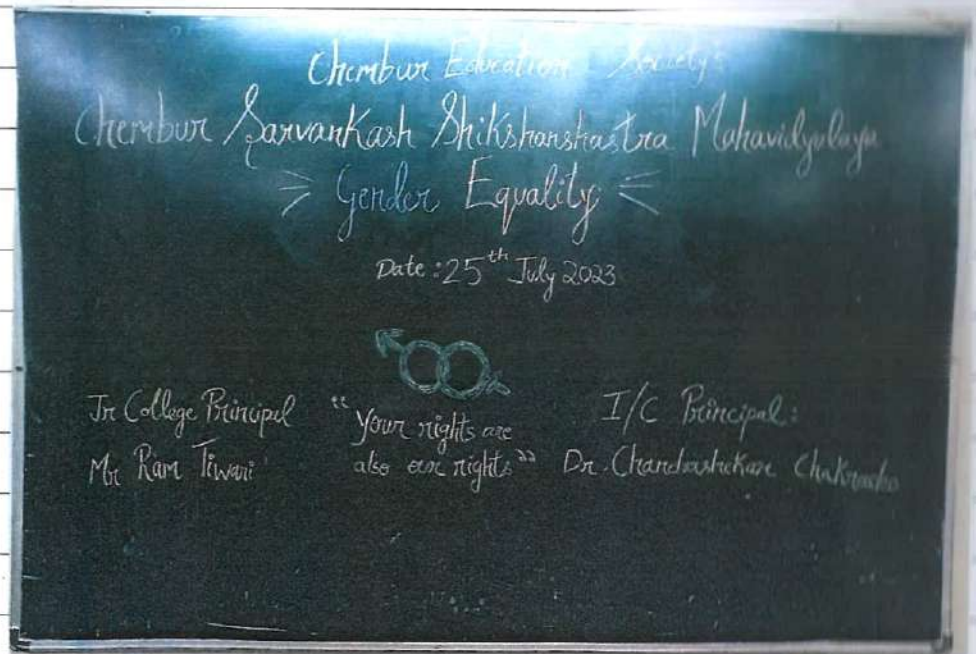 Chembur Education Society's
Chembur Sarvankash Shikshanshastra Mahavidyalaya
Gender Equality
Date : 25th July 2023
Jr College Principal
Mr Ram Tiwari
"Your rights are
also our rights"
I/C Principal:
Dr. Chandrashekar